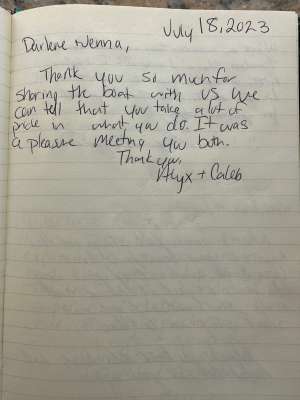 July 18, 2023
Darlene + Jenna,
Thank you so much for
sharing the boat with us. We
can tell that you take a lot of
pride in what you do. It was
a pleasure meeting you both.
Thank you,
Alyx + Caleb